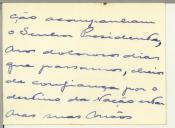 ção acompanham
o Senhor Presidente,
nos dolorosos dias
que passamos, cheios
de confiança por o
destino da Nação estar
nas suas mãos